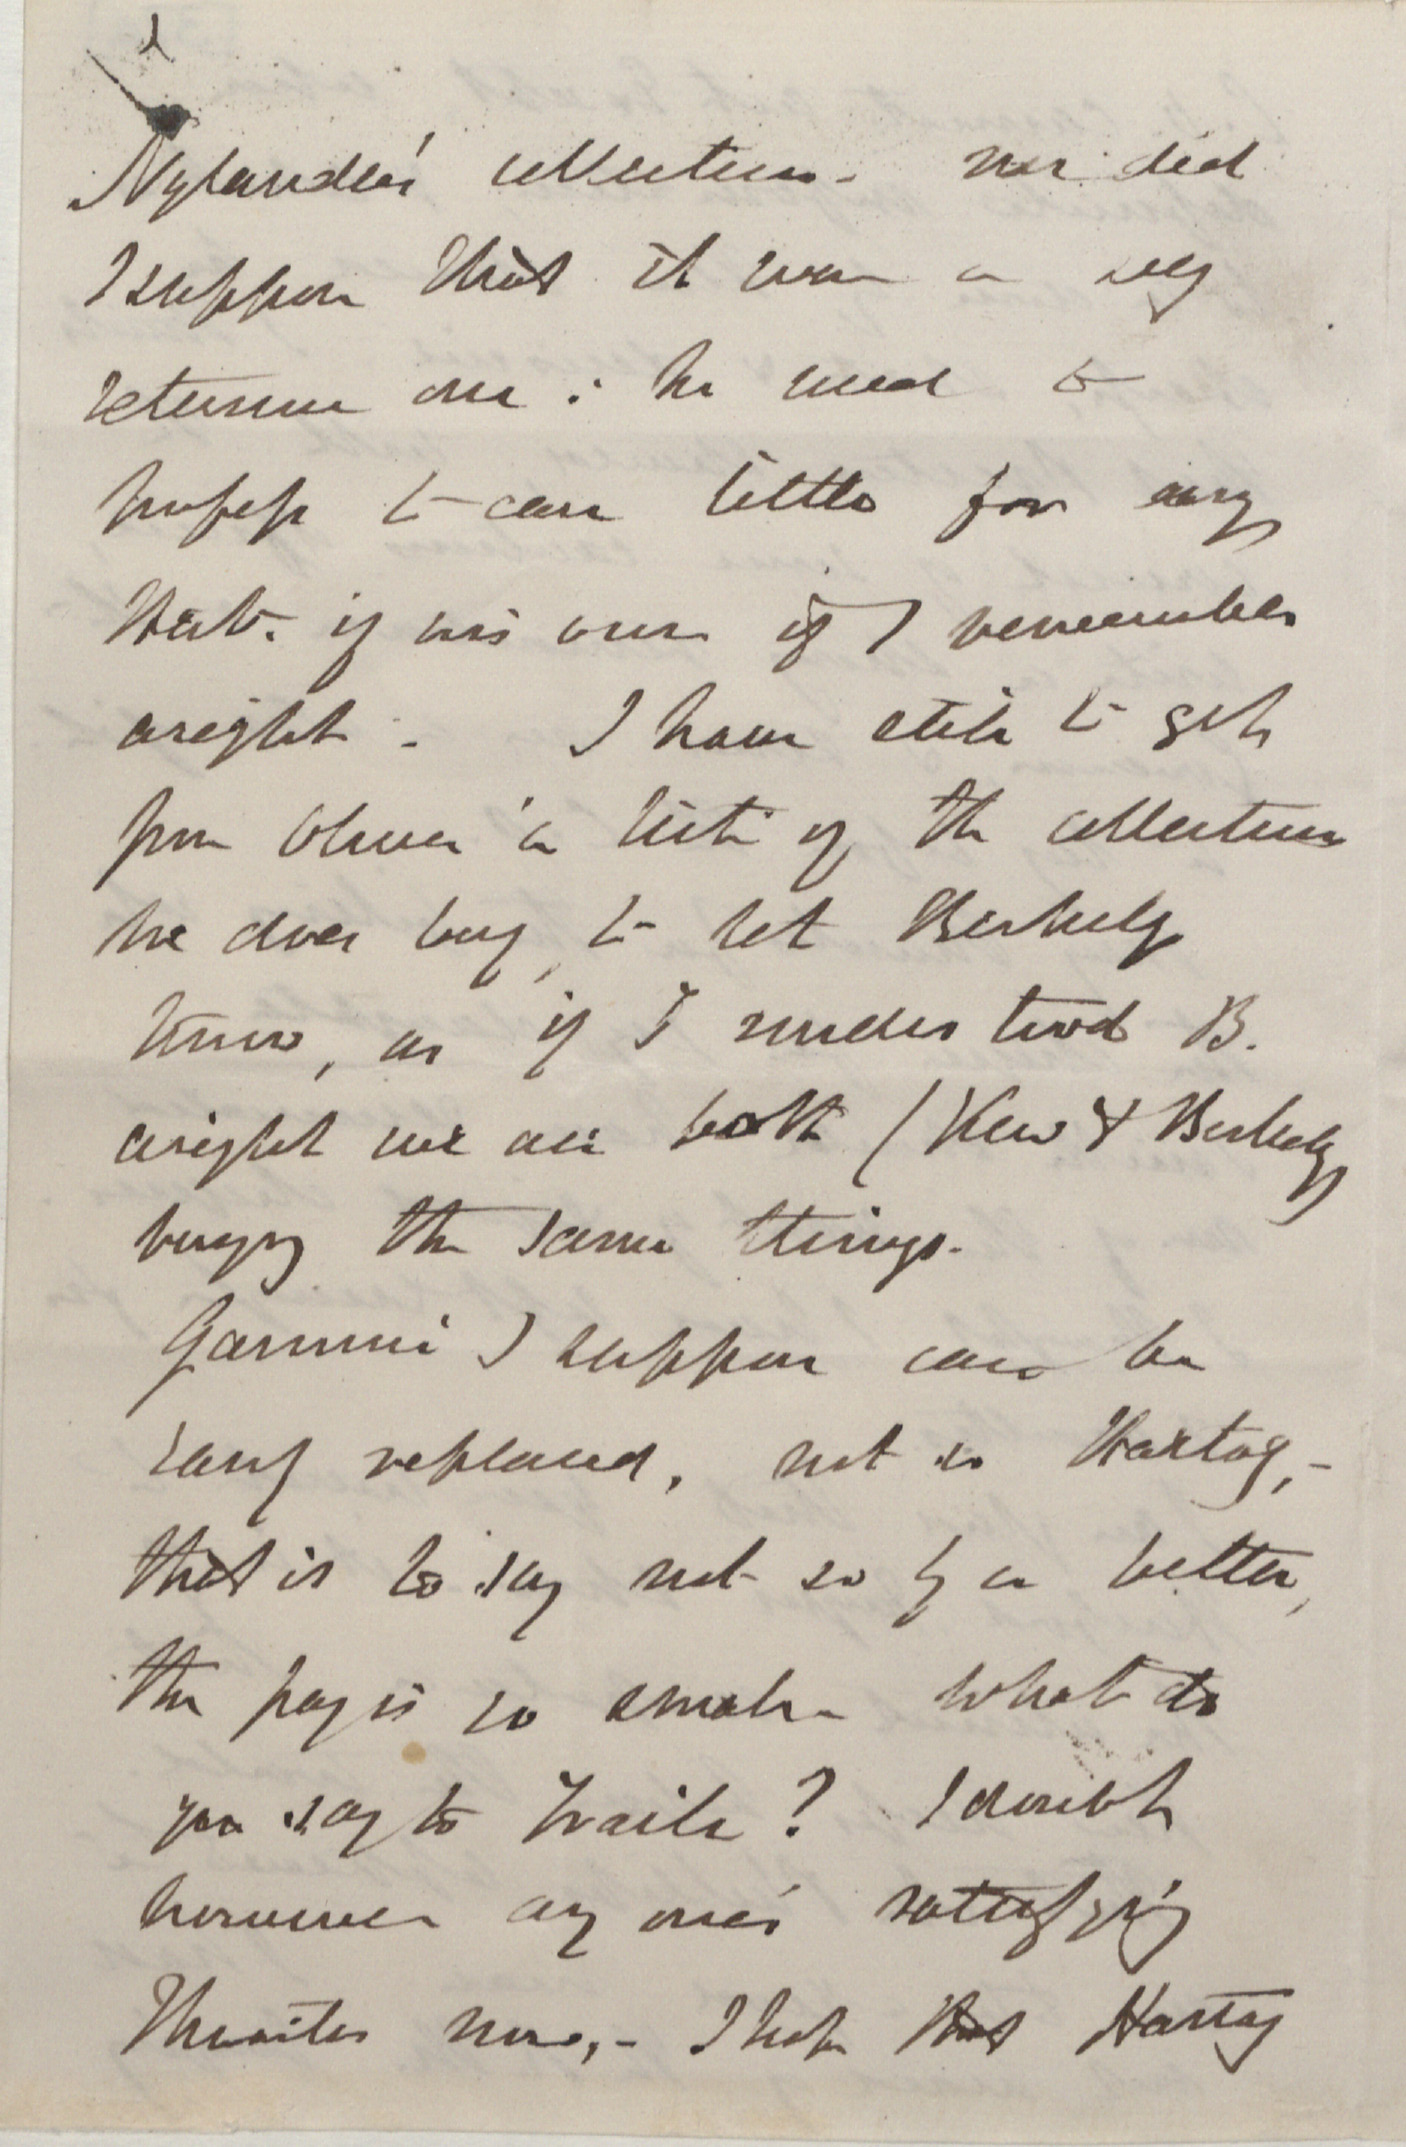 Nylander's collection. nor did
I suppose that it was a very
extensive one: he used to
profess to care little for any
Herb. if his own if I remember
aright. I have still to get
from Oliver a list of the collections
he does buy, to let Berkeley
know, as if I understood B.
aright we are both (Kew & Berkeley
buying the same things.
Gamnie I suppose can be
easily replaced, not so Hartog,-
that is to say not so by a better,
the pay is so small. What do
you say to Trail? I doubt
however any one's satisfying
Thwaites now,- I hope that Hartog